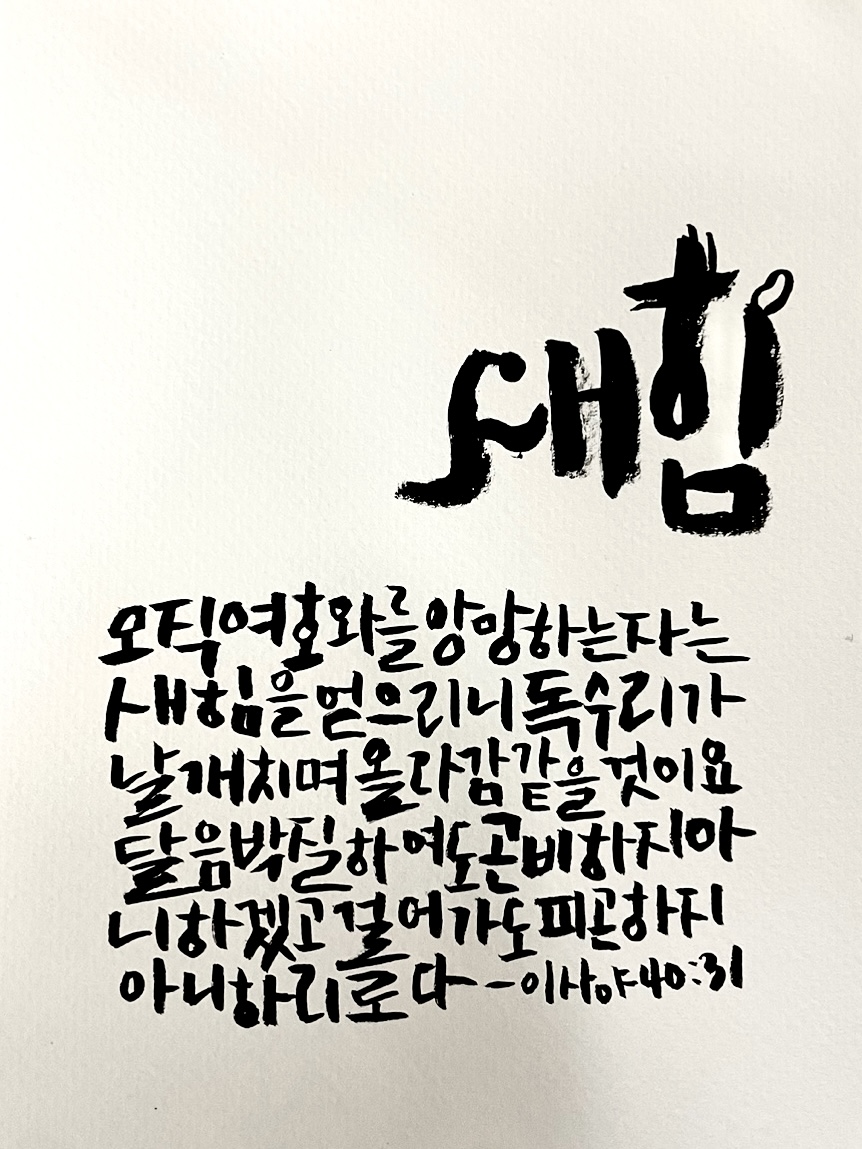 새힘
오직여호와를앙망하는자는
새힘을얻으리니독수리가
날개치며올라감같을것이요
달음박질하여도곤비하지아
니하겠고걸어가도피곤하지
아니하리로다-이사야40:31